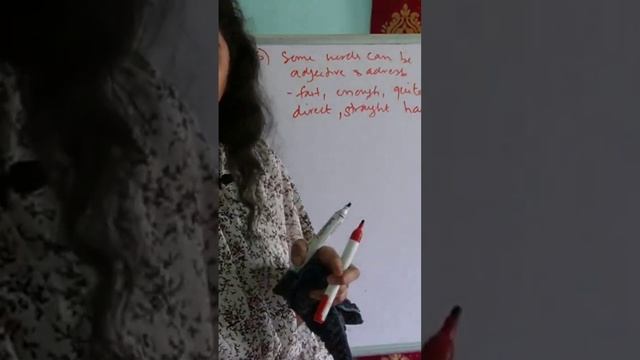 5) Some words can be
adjective & adverb
- fast, enough, quite
direct, straight ha